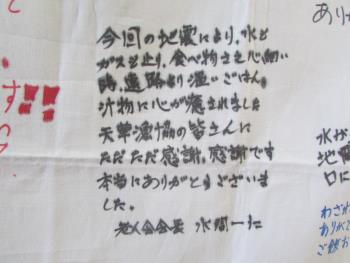 今回の地震により、水と
ガスを止り、食べ物さえ心細い
時、遠路より温いごはん。
汁物に心が癒されました
天草漁協の皆さんに
ただただ感謝、感謝です
本当にありがとうございま
した。
老人会会長 水間一仁
ありか
す!!
水が
地震
口に
わざわ
ありがと
ご飯お